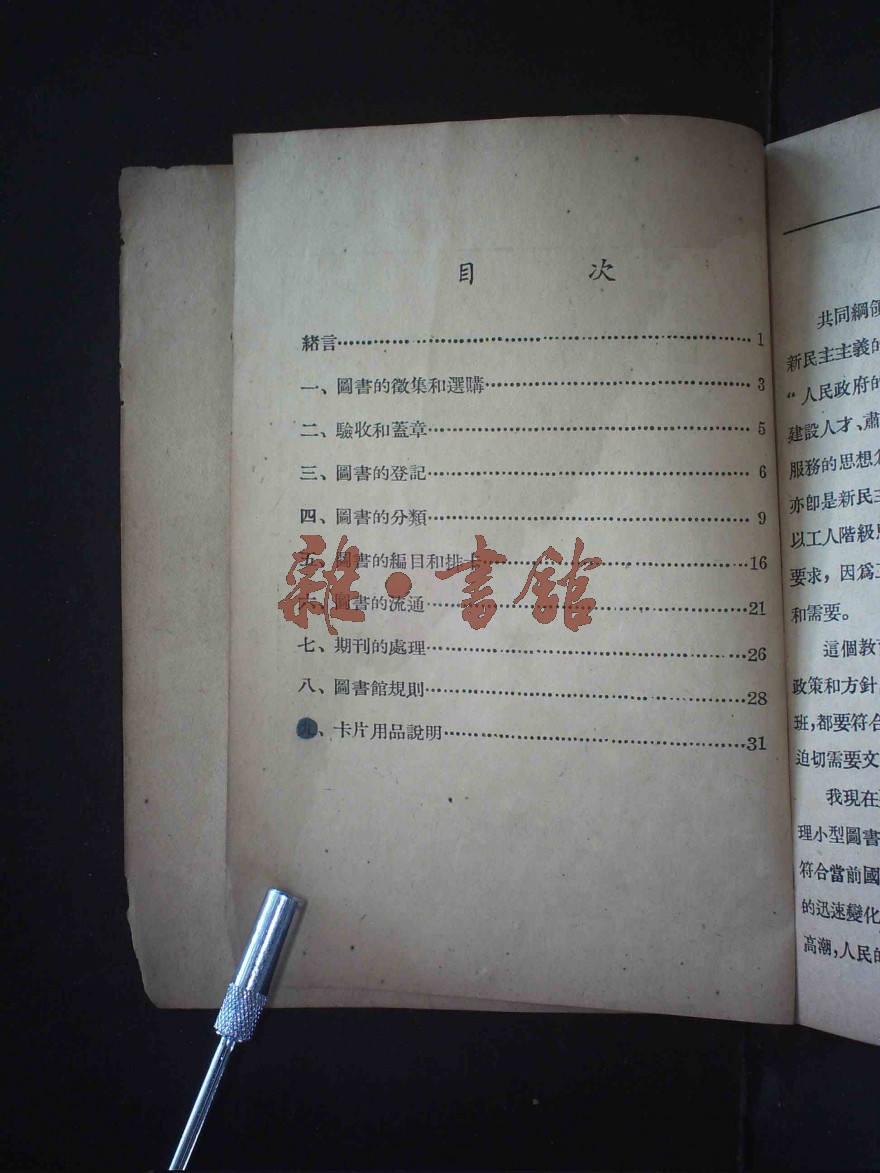 目 次
緒言 1
一、圖書的徵集和選購 3
二、驗收和蓋章 5
三、圖書的登記 6
四、圖書的分類 9
五、圖書的編目和排卡 16
六、圖書的流通 21
七、期刊的處理 26
八、圖書館規則 28
九、卡片用品說明 31
雜·書館
共同綱領
新民主主義的
“人民政府的
建設人才、肅
服務的思想
亦卽是新民主
以工人階級
要求，因爲
和需要。
這個教
政策和方針
班，都要符合
迫切需要文
我現在
理小型圖書
符合當前國
的迅速變化
高潮，人民的